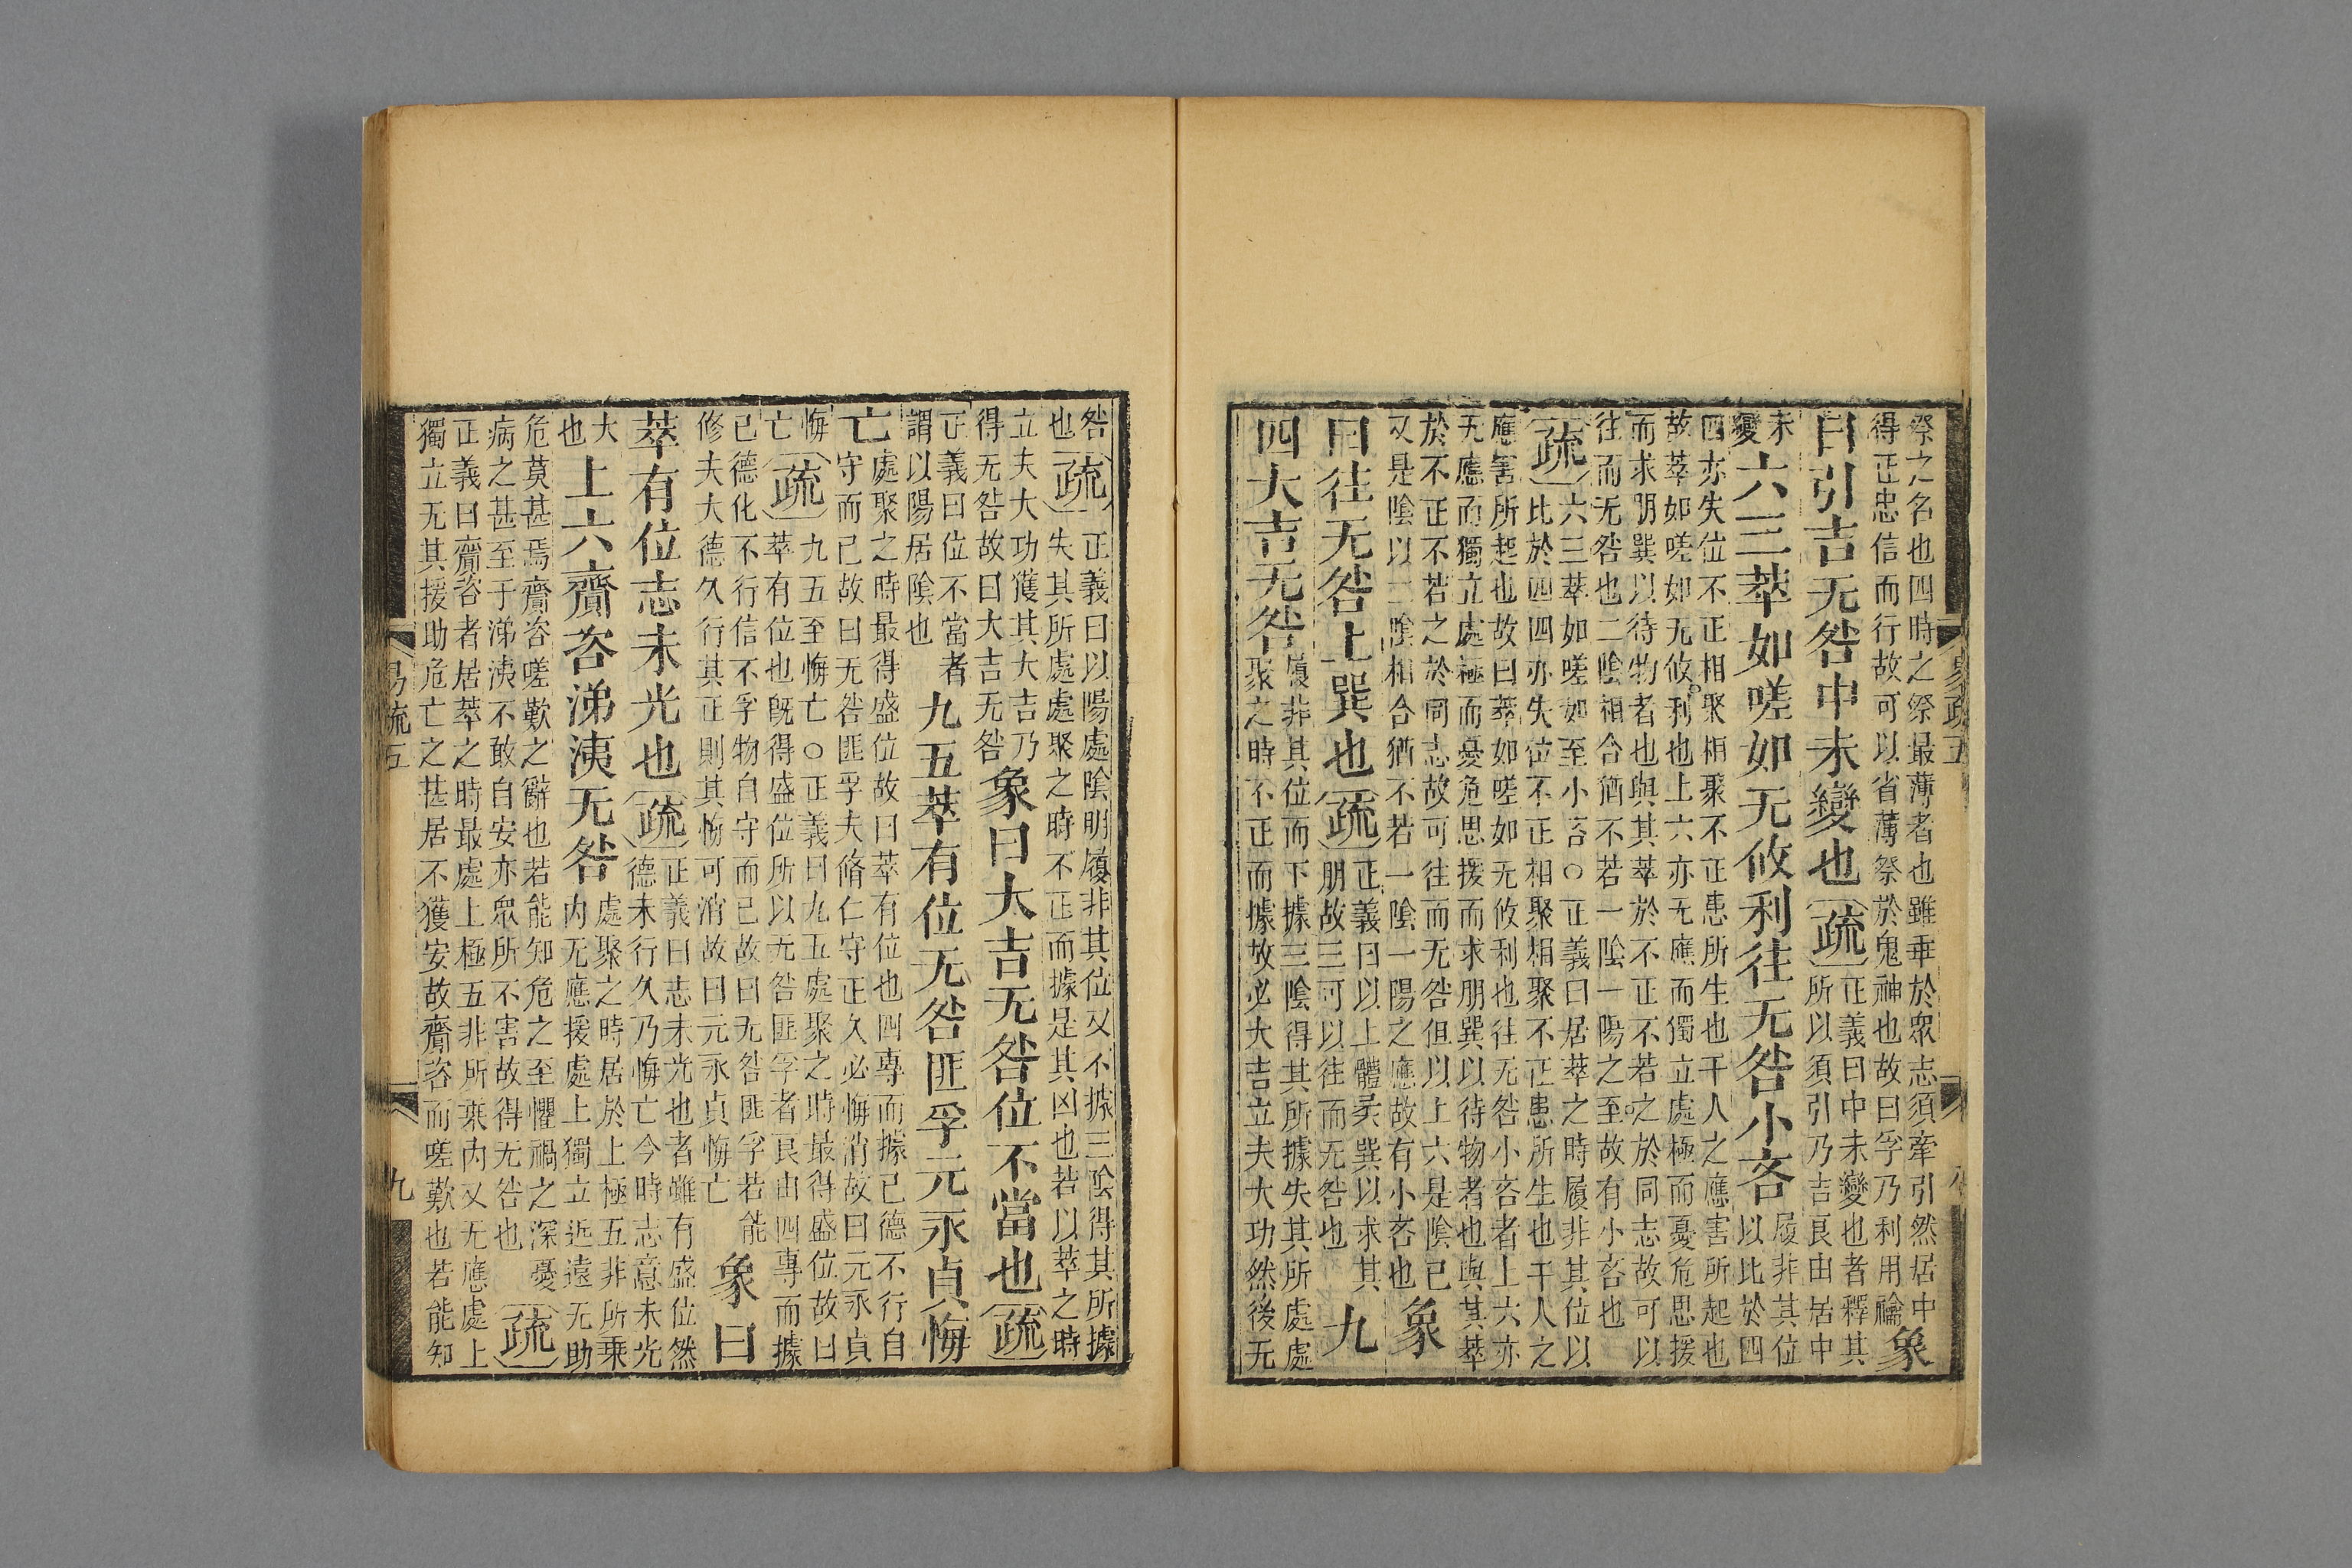 易疏五
八
祭之名也四時之祭最薄者也雖乖於衆志須牽引然居中
得正忠信而行故可以省薄祭於鬼神也故曰孚乃利用禴
象
曰引吉无咎中未變也疏
正義曰中未變也者釋其
所以須引乃吉良由居中
未
變
六三萃如嗟如无攸利往无咎小吝
履非其位
以比於四
四亦失位不正相聚相聚不正患所生也干人之應害所起也
故萃如嗟如无攸利也上六亦无應而獨立處極而憂危思援
而求朋巽以待物者也與其萃於不正不若之於同志故可以
往而无咎也二陰相合猶不若一陰一陽之至故有小吝也
疏
六三萃如嗟如至小吝○正義曰居萃之時履非其位以
比於四四亦失位不正相聚相聚不正患所生也干人之
應害所起也故曰萃如嗟如无攸利也往无咎小吝者上六亦
无應而獨立處極而憂危思援而求朋巽以待物者也與其萃
於不正不若之於同志故可往而无咎但以上六是陰已
又是陰以二陰相合猶不若一陰一陽之應故有小吝也
象
曰往无咎上巽也疏
正義曰以上體柔巽以求其
朋故三可以往而无咎也
九
四大吉无咎
履非其位而下據三陰得其所據失其所處處
聚之時不正而據故必大吉立夫大功然後无
咎
也
疏
正義曰以陽處陰明履非其位又不據三陰得其所據
失其所處處聚之時不正而據是其凶也若以萃之時
立夫大功獲其大吉乃
得无咎故曰大吉无咎
象曰大吉无咎位不當也疏
正義曰位不當者
謂以陽居陰也
九五萃有位无咎匪孚元永貞悔
亡
處聚之時最得盛位故曰萃有位也四專而據己德不行自
守而已故曰无咎匪孚夫脩仁守正久必悔消故曰元永貞
悔
亡
疏
九五至悔亡○正義曰九五處聚之時最得盛位故曰
萃有位也旣得盛位所以无咎匪孚者良由四專而據
己德化不行信不孚物自守而已故曰无咎匪孚若能
修夫大德久行其正則其悔可消故曰元永貞悔亡
象曰
萃有位志未光也疏
正義曰志未光也者雖有盛位然
德未行久乃悔亡今時志意未光
大
也
上六齎咨涕洟无咎
處聚之時居於上極五非所乗
内无應援處上獨立近遠无助
危莫甚焉齎咨嗟歎之辭也若能知危之至懼禍之深憂
病之甚至于涕洟不敢自安亦衆所不害故得无咎也
疏
正義曰齎咨者居萃之時最處上極五非所乗内又无應處上
獨立无其援助危亡之甚居不獲安故齎咨而嗟歎也若能知
易疏五
九